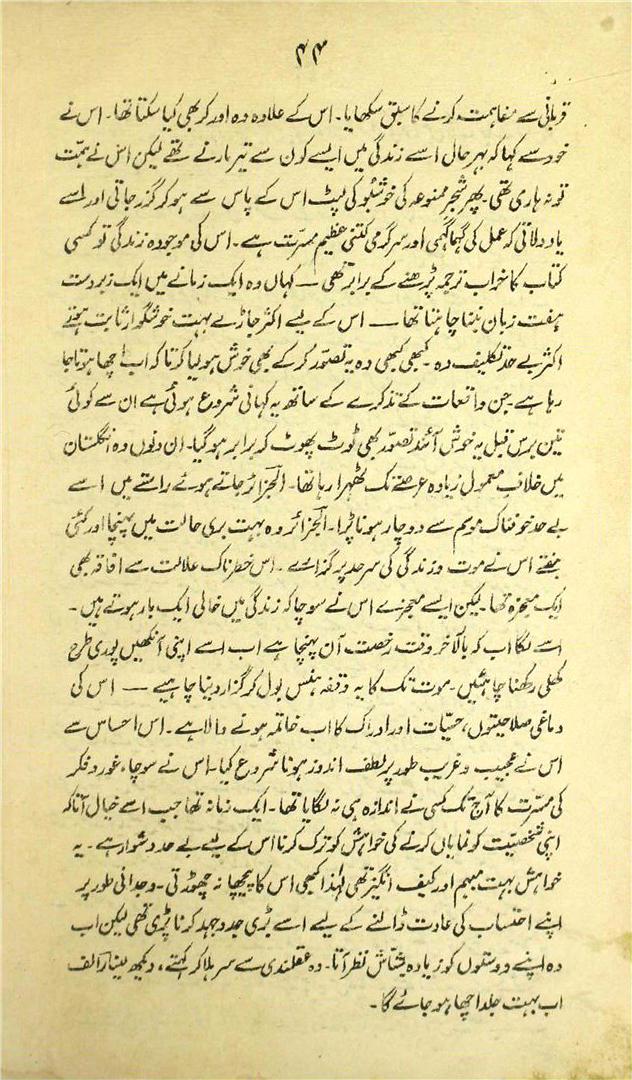 ۴۴
قربانی سے مفاہمت کرنے کا سبق سکھایا۔ اس کے علاوہ وہ اور کر بھی کیا سکتا تھا۔ اس نے
خود سے کہا کہ بہر حال اسے زندگی میں ایسے کون سے تیر مارنے تھے لیکن اس نے ہمّت
تو نہ ہاری تھی۔ پھر شجرِ ممنوعہ کی خوشبُو کی لپٹ اس کے پاس سے ہو کر گزر جاتی اور اسے
یاد دلاتی کہ عمل کی گہما گہمی اور سرگرمی کتنی عظیم مسرّت ہے۔ اس کی موجودہ زندگی تو کسی
کتاب کا خراب ترجمہ پڑھنے کے برابر تھی — کہاں وہ ایک زمانے میں ایک زبردست
ہفت زبان بننا چاہتا تھا — اس کے لیے اکثر جاڑے بہت خوشگوار ثابت ہوتے
اکثر بے حد تکلیف دہ۔ کبھی کبھی وہ یہ تصوّر کر کے بھی خوش ہو لیا کرتا کہ اب اچھا ہوتا جا
رہا ہے۔ جن واقعات کے تذکرے کے ساتھ یہ کہانی شروع ہوئی ہے ان سے کوئی
تین برس قبل یہ خوش آئند تصوّر بھی ٹوٹ پھوٹ کر برابر ہو گیا۔ ان دنوں وہ انگلستان
میں خلافِ معمول زیادہ عرصے تک ٹھہرا رہا تھا۔ الجزائر جاتے ہوئے راستے میں اسے
بے حد خوفناک موسم سے دوچار ہونا پڑا۔ الجزائر وہ بہت بری حالت میں پہنچا اور کئی
ہفتے اس نے موت و زندگی کی سرحد پر گزارے۔ اس خطرناک علالت سے افاقہ بھی
ایک معجزہ تھا۔ لیکن ایسے معجزے اس نے سوچا کہ زندگی میں خالی ایک بار ہوتے ہیں۔
اسے لگا اب کہ بالآخر وقت رخصت آن پہنچا ہے اب اسے اپنی آنکھیں پوری طرح
کھلی رکھنا چاہئیں۔ موت تک کا یہ وقفہ ہنس بول کر گزار دینا چاہیے — اس کی
دماغی صلاحیتوں، حسّیات اور ادراک کا اب خاتمہ ہونے والا ہے۔ اس احساس سے
اس نے عجیب و غریب طور پر لطف اندوز ہونا شروع کیا۔ اس نے سوچا، غور و فکر
کی مسرّت کا آج تک کسی نے اندازہ ہی نہ لگایا تھا۔ ایک زمانہ تھا جب اسے خیال آتا کہ
اپنی شخصیّت کو نمایاں کرنے کی خواہش کو ترک کرنا اس کے لیے بے حد دشوار ہے۔ یہ
خواہش بہت مبہم اور کیف انگیز تھی لہٰذا کبھی اس کا پیچھا نہ چھوڑتی۔ وجدانی طور پر
اپنے احتساب کی عادت ڈالنے کے لیے اسے بڑی جدوجہد کرنا پڑی تھی لیکن اب
وہ اپنے دوستوں کو زیادہ بشّاش نظر آتا۔ وہ عقلمندی سے سر ہلا کر کہتے، دیکھ لینا رالف
اب بہت جلد اچھا ہو جائے گا۔